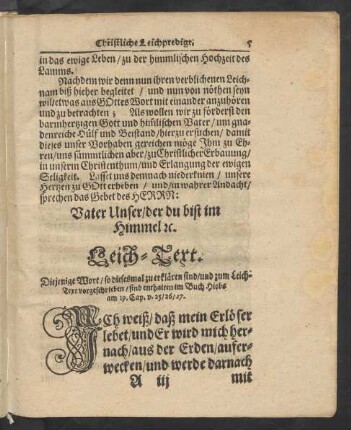 Christliche Leichpredigt. 5
in das ewige Leben / zu der himmlischen Hochzeit des
Lamms.
Nachdem wir denn nun ihren verblichenen Leich-
nam biß hieher begleitet / und nun von nöthen seyn
will etwas aus GOttes Wort mit einander anzuhören
und zu betrachten; Als wollen wir zu förderst den
barmhertzigen Gott und himlischen Vater / um gna-
denreiche Hülf und Beistand / hierzu ersuchen / damit
dieses unser Vorhaben gereichen möge Ihm zu Eh-
ren / uns sämmtlichen aber / zu Christlicher Erbauung /
in unserm Christenthum / und Erlangung der ewigen
Seligkeit. Lasset uns demnach niederknien / unsere
Hertzen zu GOtt erheben / und / in wahrer Andacht /
sprechen das Gebet des HERRN:
Vater Unser / der du bist im
Himmel ꝛc.
Leich-Text.
Diejenige Wort / so diesesmal zu erklären sind / und zum Leich-
Text vorgeschrieben / sind enthalten im Buch Hiobs
am 19. Cap. v. 25/26/27.
ICh weiß / daß mein Erlöser
lebet / und Er wird mich her-
nach / aus der Erden / aufer-
wecken / und werde darnach
A iij mit